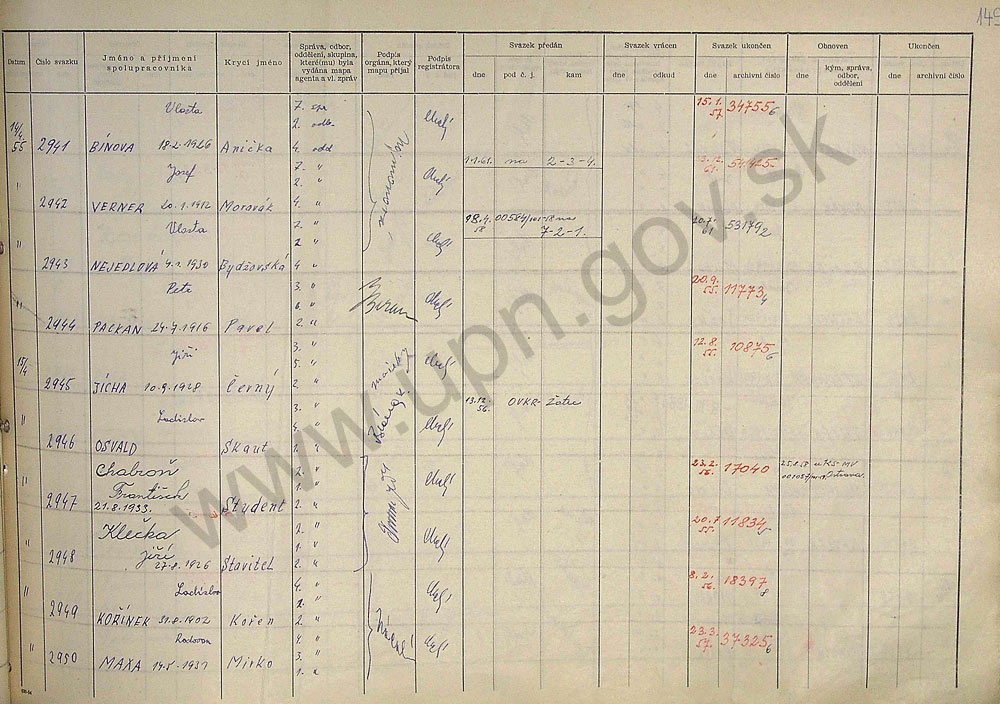 149
Datum
Číslo svazku
Jméno a příjmení
spolupracovníka
Krycí jméno
Správa, odbor,
oddělení, skupina,
které(mu) byla
vydána mapa
agenta a vl. zpráv
Podpis
orgána, který
mapu přijal
Podpis
registrátora
Svazek předán
dne
pod č. j.
kam
Svazek vrácen
dne
odkud
Svazek ukončen
dne
archivní číslo
Obnoven
dne
kým, správa,
odbor,
oddělení
Ukončen
dne
archivní číslo
14/4
55
2941
Vlasta
BÍNOVA 18.2.1926
Anička
7. spr
2. odb.
4. odd
1.1.61. na 2-3-4.
15.1.
57. 34755 6
" 2942
Josef
VERNER 20.1.1912
Moravák
7. "
2. "
4. "
3.12.
61.
" 2943
Vlasta
NEJEDLOVÁ 4.1.1930
Bydžovská
7. "
2 "
4 "
18.4.
58
7-2-1.
20.7.
61 53179 2
" 2944
Petr
PACKAN 24.7.1916
Pavel
3. "
6. "
2. "
Beran
20.9.
55. 11773 4
15/4
2945
Jiří
JÍCHA 10.9.1928
Černý
3. "
5. "
2. "
12.8.
55. 10875 6
" 2946
Ladislav
OSVALD
Skaut
3. "
4. "
1. "
13.12.
56. OVKR- Žatec
" 2947
Chabroň
František
21.8.1933.
Student
2. "
1. "
2. "
23.2.
56. 17040
25.8.58 u KS-MV
Ostrava
" 2948
Klečka
Jiří
27.8.1926
Stavitel
2. "
1. "
2. "
20.7
55. 11834 5
" 2949
Ladislav
KOŘÍNEK 31.8.1902
Kořen
4. "
2. "
2. "
8.2.
56. 18397 8
" 2950
Radovan
MAXA 19.5.1931
Mirko
4. "
3. "
1. "
23.3.
57. 37325 6
www.upn.gov.sk